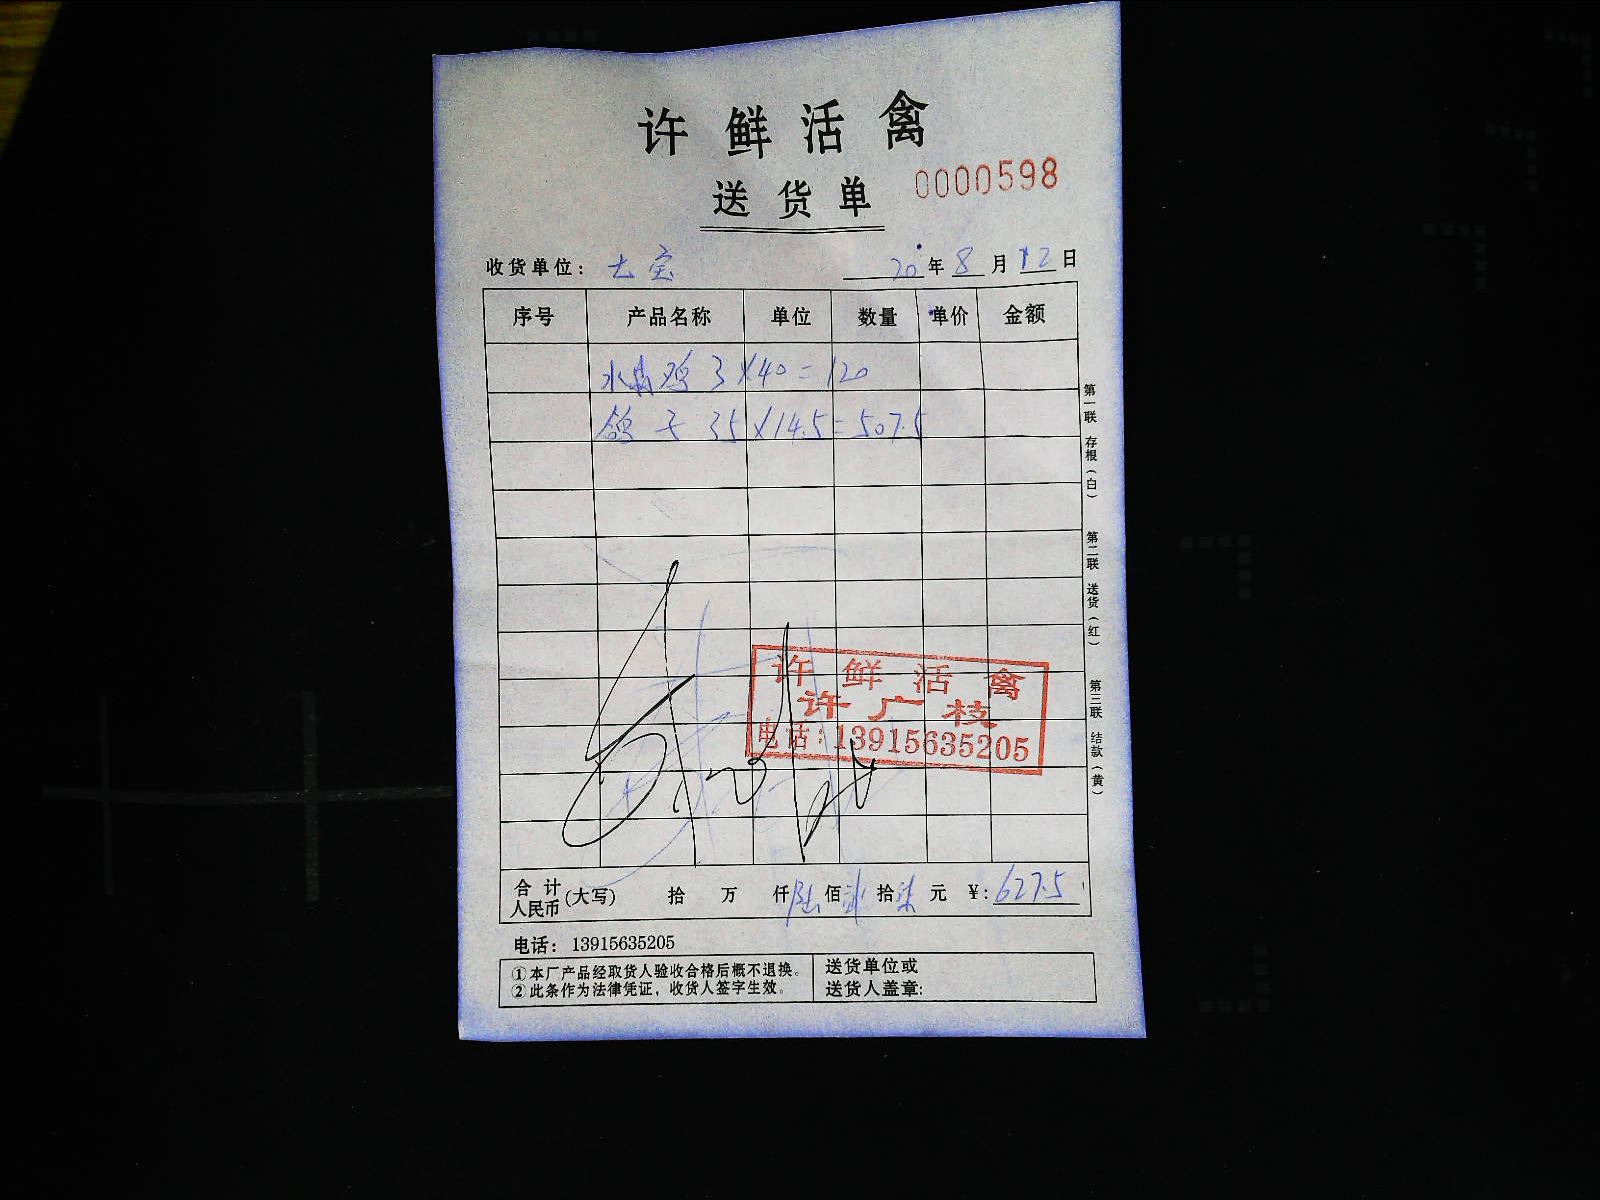 许鲜活禽
送货单 0000598
收货单位：大宝 20年8月12日
序号 产品名称 单位 数量 单价 金额
水晶鸡 3×40=120
鸽子 35×14.5=507.5
许鲜活禽
许广枝
电话：13915635205
合计人民币(大写) 拾 万 仟陆佰贰拾柒元 ¥：627.5
电话：13915635205
①本厂产品经取货人验收合格后概不退换。
②此条作为法律凭证，收货人签字生效。
送货单位或
送货人盖章：
第一联 存根（白）
第二联 送货（红）
第三联 结款（黄）